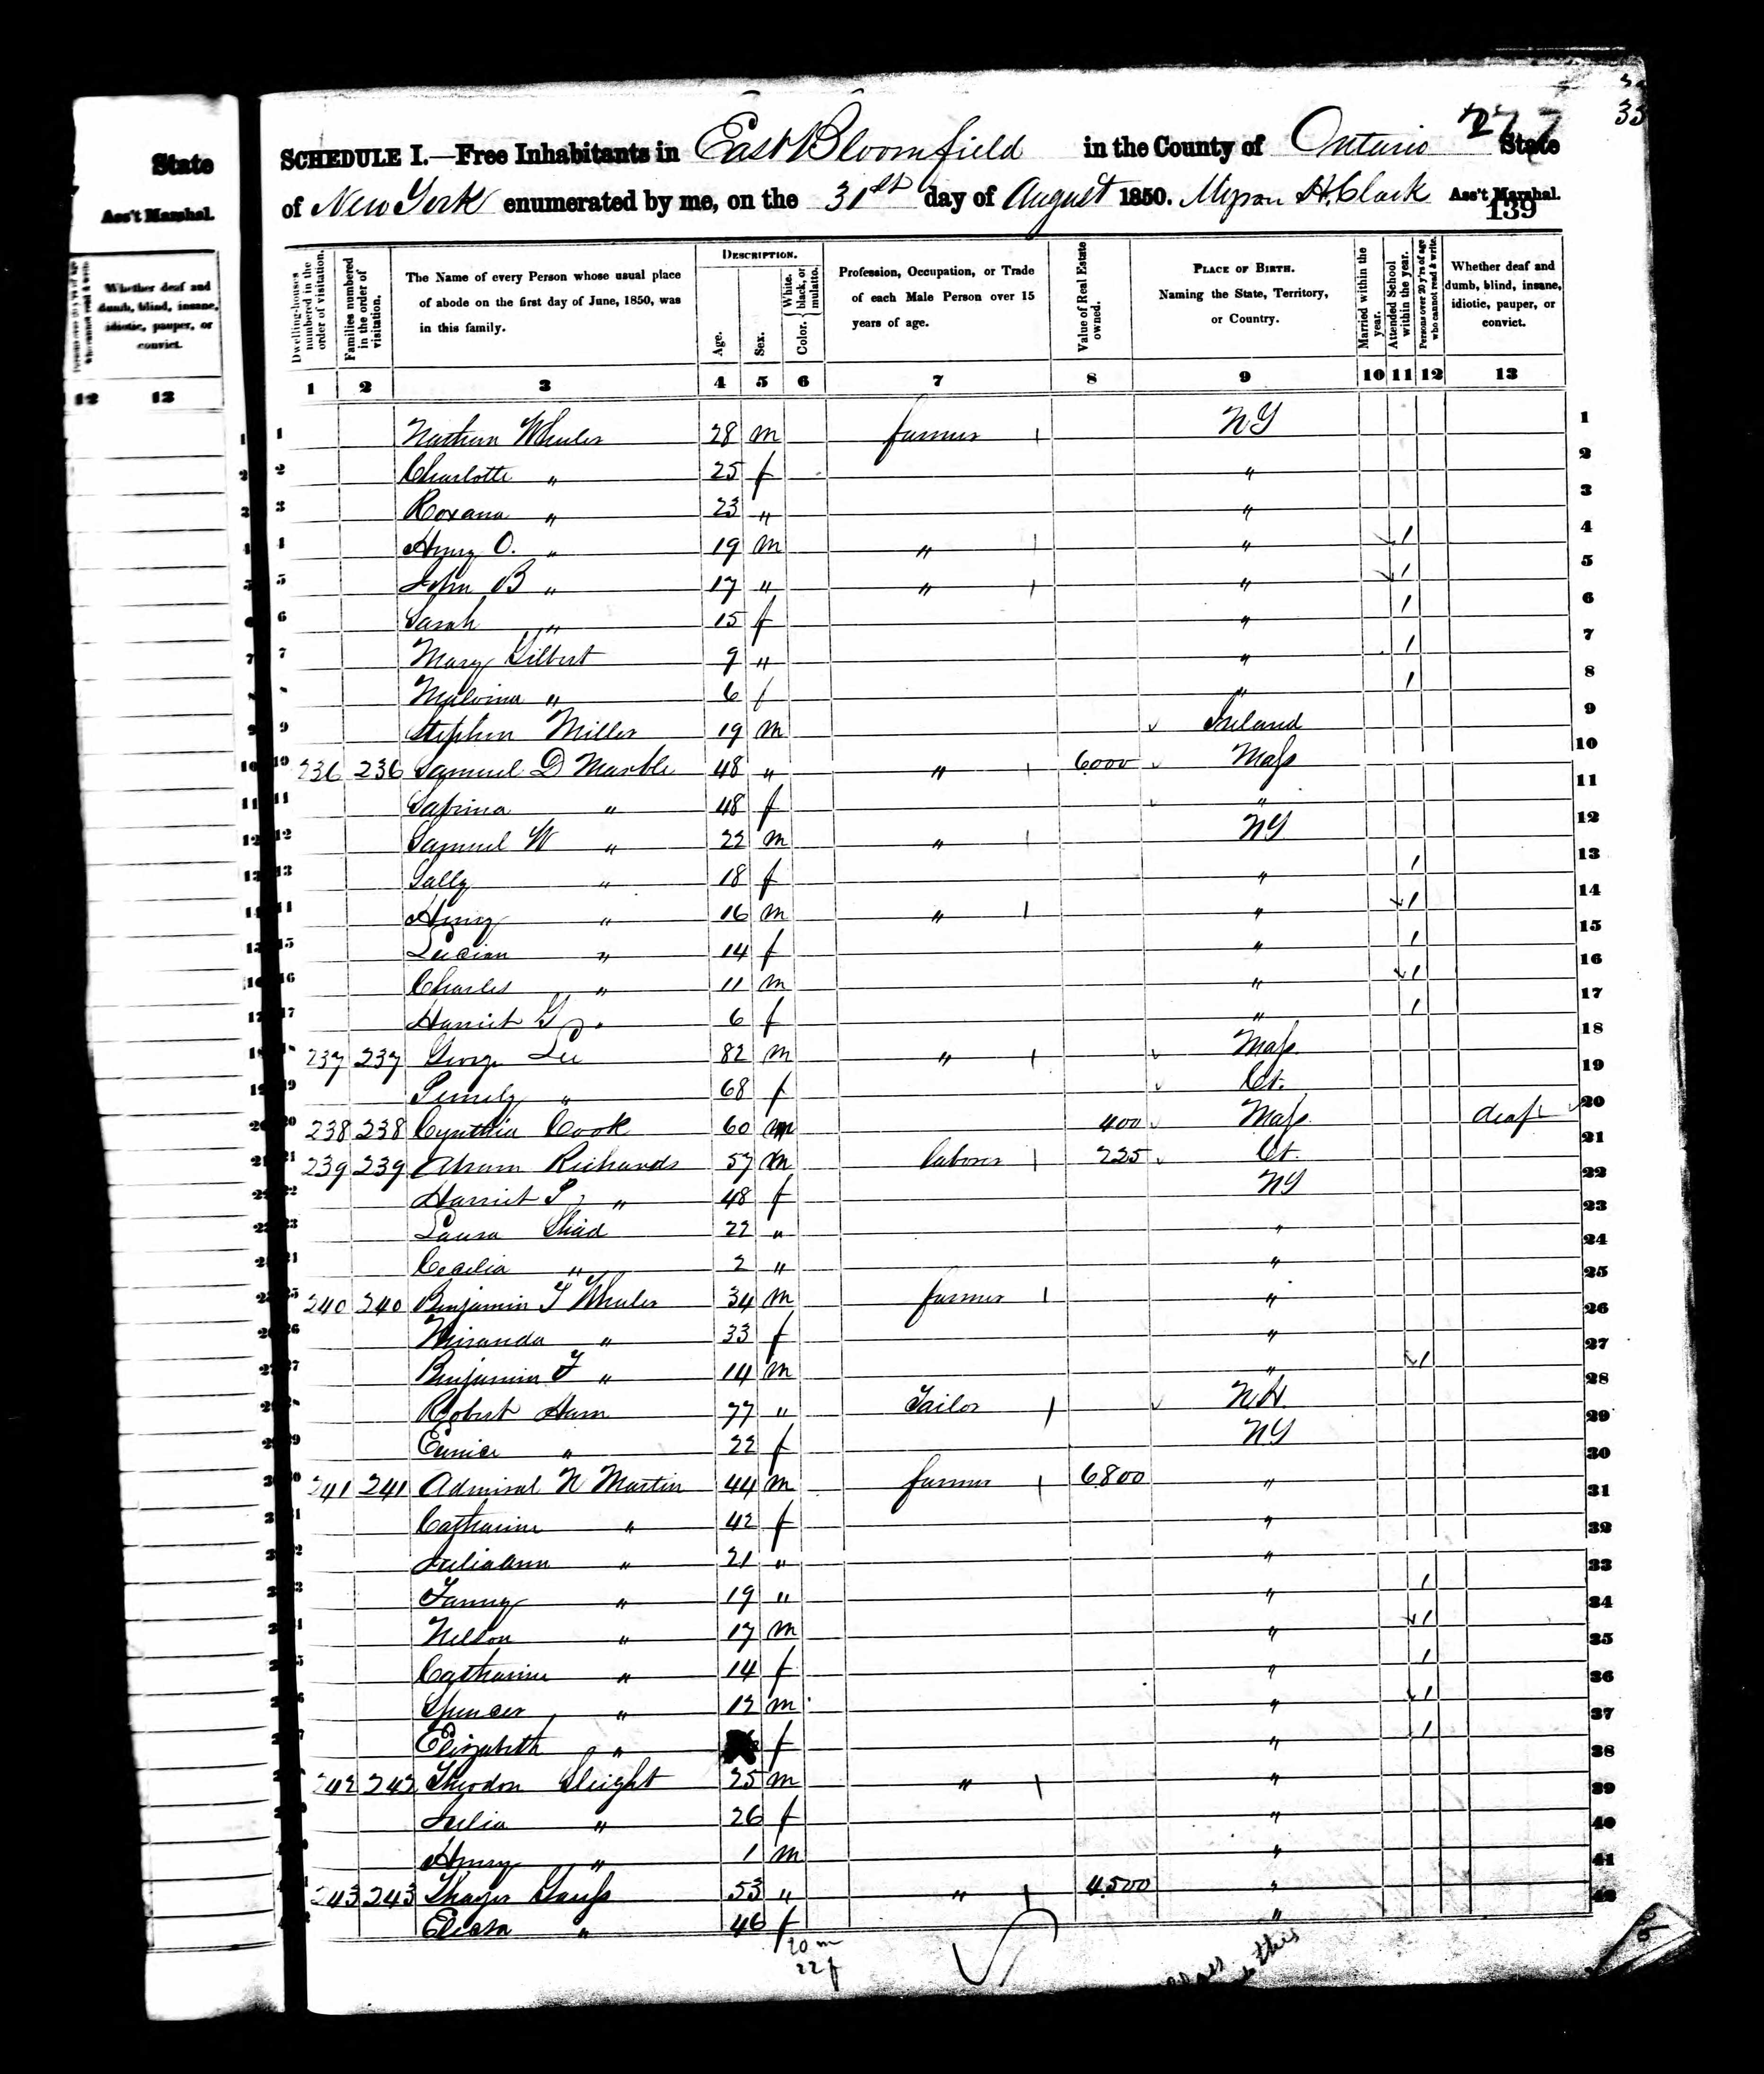 State
Ass't Marshal.
Whether deaf and dumb, blind, insane, idiotic, pauper, or convict.
12 13
33
277
SCHEDULE I.—Free Inhabitants in East Bloomfield in the County of Ontario State
of New York enumerated by me, on the 31st day of August 1850. Myron H. Clark Ass't Marshal.
139
Dwelling-houses numbered in the order of visitation.
Families numbered in the order of visitation.
The Name of every Person whose usual place of abode on the first day of June, 1850, was in this family.
DESCRIPTION.
Age.
Sex.
Color. { White, black, or mulatto.
Profession, Occupation, or Trade of each Male Person over 15 years of age.
Value of Real Estate owned.
PLACE OF BIRTH. Naming the State, Territory, or Country.
Married within the year.
Attended School within the year.
Persons over 20 y'rs of age who cannot read & write.
Whether deaf and dumb, blind, insane, idiotic, pauper, or convict.
1 2 3 4 5 6 7 8 9 10 11 12 13
1 Nathan Wheeler 28 m farmer NY 1
2 Charlotte " 25 f " 2
3 Roxana " 23 " " 3
4 Henry O. " 19 m " " 1 4
5 John B " 17 " " " 1 5
6 Sarah " 15 f " 1 6
7 Mary Gilbert 9 " " 1 7
Malvina " 6 f " 1 8
9 Stephen Miller 19 m Ireland 9
10 236 236 Samuel D Marble 48 " " 6000 Mass 10
11 Sabrina " 48 f " 11
12 Samuel W " 22 m " NY 12
13 Sally " 18 f " 1 13
14 Henry " 16 m " " 1 14
15 Lucian " 14 f " 1 15
16 Charles " 11 m " 1 16
17 Harriet G " 6 f " 1 17
237 237 George Lee 82 m " Mass 18
19 " 68 f Ct. 19
20 238 238 Cynthia Cook 60 400 Mass deaf 20
21 239 239 Abram Richards 57 m laborer 225 Ct. 21
22 Harriet P " 48 f NY 22
23 Laura 22 " " 23
Cecilia " 2 " " 24
25 240 240 Benjamin F Wheeler 34 m farmer " 25
26 Miranda " 33 f " 26
27 Benjamin F " 14 m " 1 27
Robert Ham 77 " Tailor N.H. 28
29 Eunice " 22 f NY 29
30 241 241 Admiral N Martin 44 m farmer 6800 " 30
31 Catharine " 42 f " 31
Julia Ann " 21 " " 32
Fanny " 19 " " 1 33
Nelson " 17 m " 1 34
Catharine " 14 f " 1 35
Spencer " 12 m " 1 36
Elizabeth " f " 1 37
242 242 Sleight 25 m " " 38
Julia " 26 f " 39
Henry " 1 m " 40
243 243 Thayer Gauss 53 " " 4500 " 41
" 46 f " 42
20 m
22 f
this